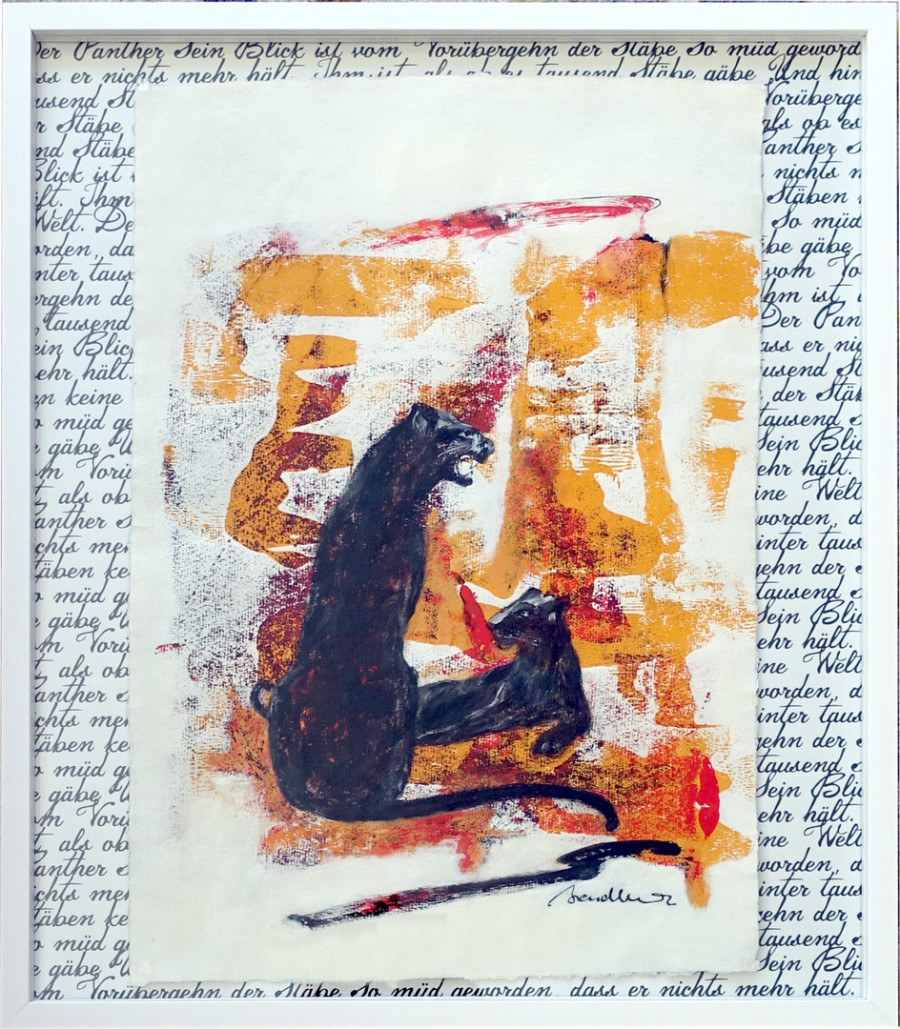 Der Panther Sein Blick ist vom Vorübergehn der Stäbe So müd geword
ss er nichts mehr hält. Ihm ist, als ob es tausend Stäbe gäbe Und hin
usend St Vorüberge
r Stäbe als ob es
nd Stäbe Panther S
Blick ist nichts m
ilt. Ihm Stäben
Welt. De So müd
orden, da be gäbe
inter taus vom Vo
ergehn de Ihm ist
tausend Der Pan
ein Blick ass er nic
ehr hält. usend St
en keine der Stä
müd ge tausend
gäbe U Sein Blic
m Vorü ehr hält.
, als ob ine Welt
anther S worden, d
chts meh inter taus
täben ke gehn der S
o müd g tausend
e gäbe U Sein Bli
m Vorü ehr hält.
, als ob ine Welt
anther S worden, d
chts meh inter taus
täben ke gehn der S
o müd g tausend
e gäbe U Sein Bli
m Vorü ehr hält.
, als ob ine Welt
anther S worden, d
chts meh inter taus
täben ke gehn der S
o müd g tausend S
e gäbe U Sein Bli
m Vorübergehn der Stäbe So müd geworden, dass er nichts mehr hält.